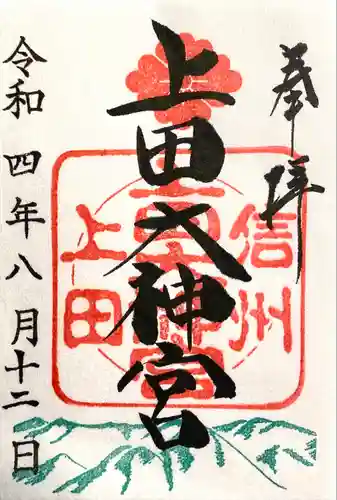 奉拝
上田大神宮
信州
上田
令和四年八月十二日